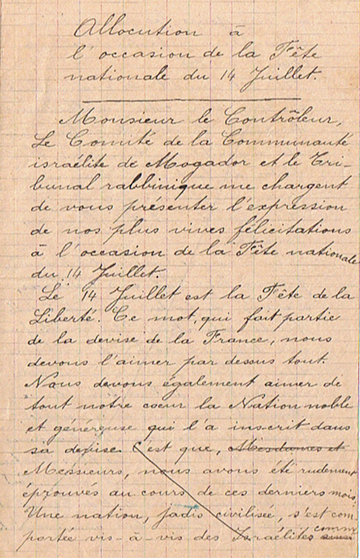 Allocution à
l'occasion de la Fête
nationale du 14 Juillet.
Monsieur le Contrôleur,
Le Comité de la Communauté
israélite de Mogador et le Tri-
bunal rabbinique me chargent
de vous présenter l'expression
de nos plus vives félicitations
à l'occasion de la Fête nationale
du 14 Juillet.
Le 14 Juillet est la Fête de la
Liberté. Ce mot, qui fait partie
de la devise de la France, nous
devons l'aimer par dessus tout.
Nous devons également aimer de
tout notre coeur la Nation noble
et généreuse qui l'a inscrit dans
sa devise. C'est que, Mesdames et
Messieurs, nous avons été rudement
éprouvés au cours de ces derniers mois
Une nation, jadis civilisée, s'est com
portée vis-à-vis des Israélites comme